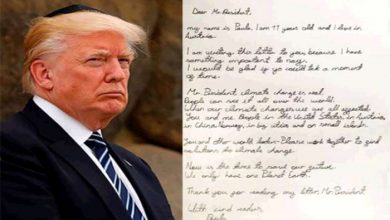 Dear Mr. President,
my name is Paula, I am 11 years old and I live in
Austria.
I am writing this letter to you, because I have
something important to say.
I would be glad if you could take a moment
of time.
Mr. President climate change is real.
People can see it all over the world.
When our climate changes we are all affected.
You and me. People in the United States, in Austria,
in China, Norway, in big cities and on small islands.
You and other world leader - Please work together to find
solutions to climate change.
Now is the time to save our future.
We only have one Planet Earth.
Thank you for reading my letter, Mr. President.
With kind
Paula